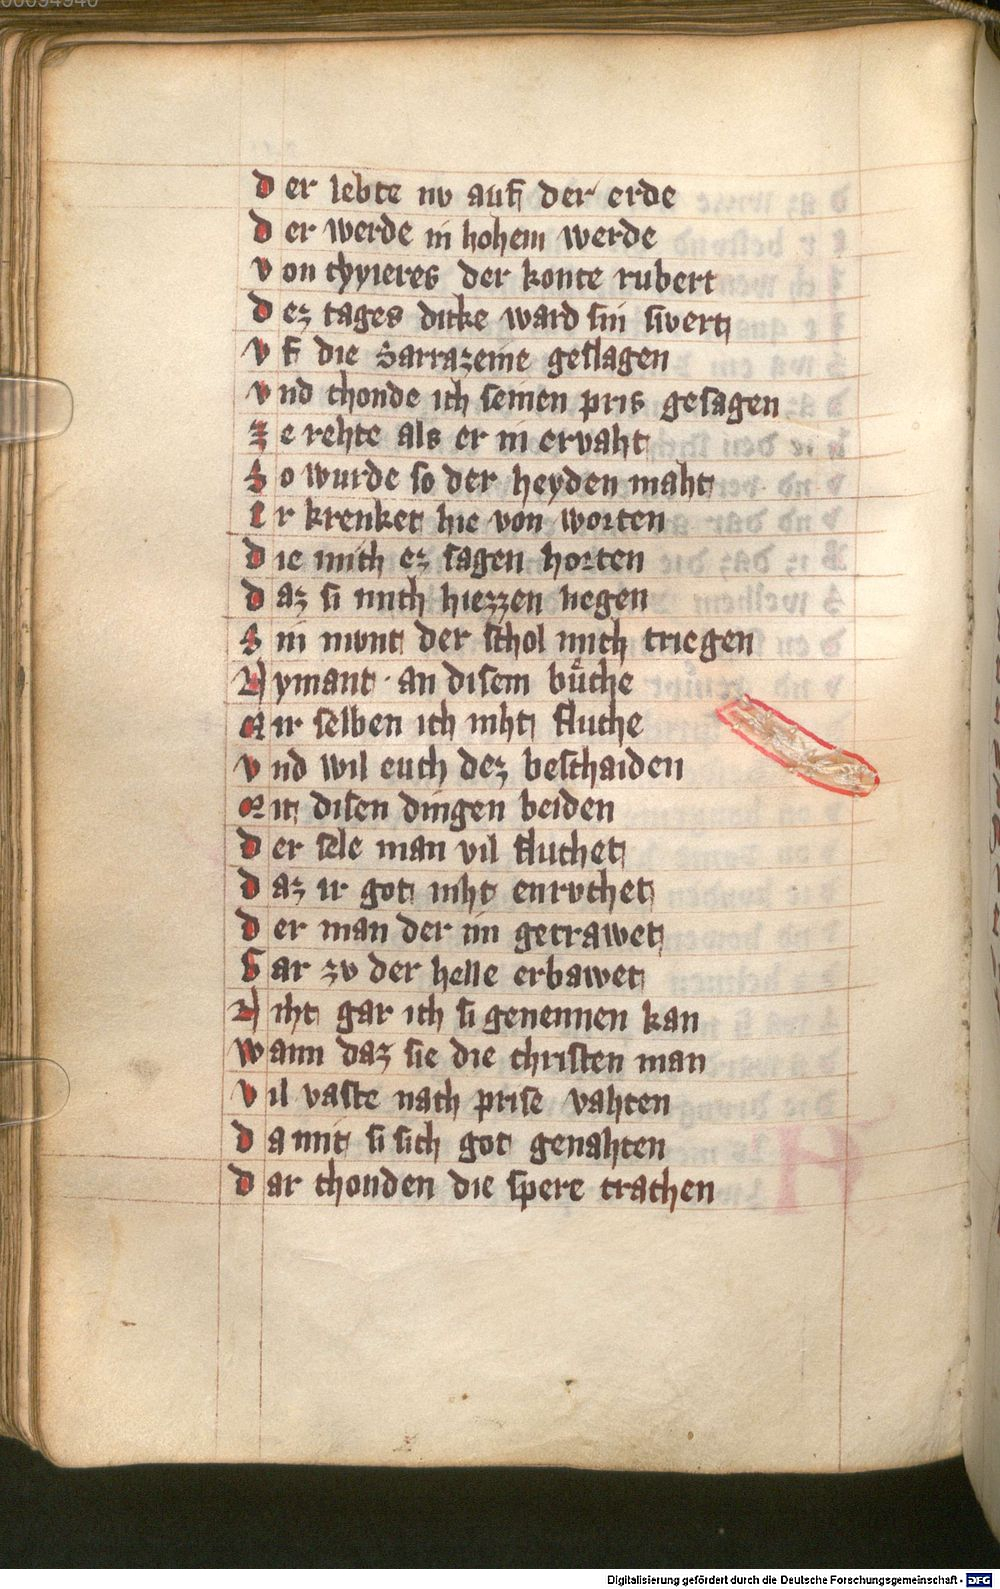 00094940
der lebte nv auf der erde
der werde in hohem werde
von thyieres der konte rubert
dez tages dicke ward sin swert
vf die Sarrazeine geslagen
vnd chonde ich seinen pris gesagen
Ze rehte als er in ervaht
So wurde so der heyden maht
Er krenket hie von worten
die mich ez sagen horten
daz si mich hiezzen liegen
Sin mvnt der schol mich triegen
Nymant · an disem bůche
Mir selben ich niht fluche
vnd wil euch dez beschaiden
Mit disen dingen beiden
der sele man vil fluchet
daz ir got niht enrvchet
der man der im getrawet
Gar zv der helle erbawet
Niht gar ich si genennen kan
wann daz sie die christen man
vil vaste nach prise vahten
da mit si sich got genahten
dar chonden die spere crachen
Digitalisierung gefördert durch die Deutsche Forschungsgemeinschaft - DFG